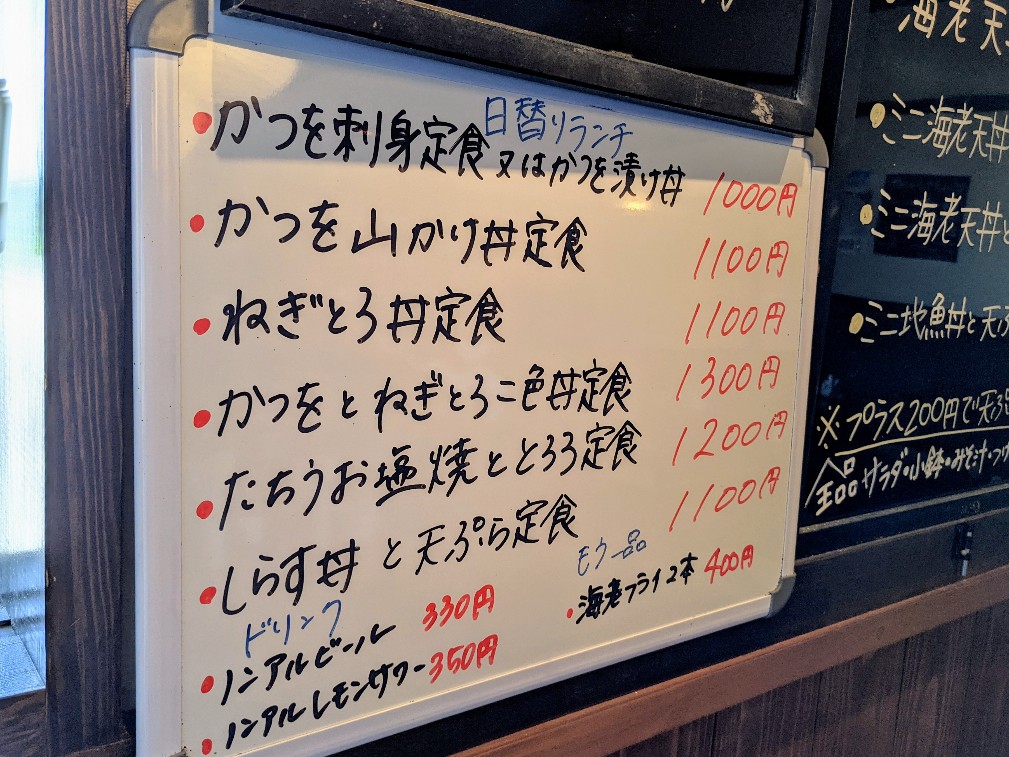 日替りランチ
・かつを刺身定食 又はかつを漬け丼 1000円
・かつを山かけ丼定食 1100円
・ねぎとろ丼定食 1100円
・かつをとねぎとろ二色丼定食 1300円
・たちうお塩焼ととろろ定食 1200円
・しらす丼と天ぷら定食 1100円
ドリンク
・ノンアルビール 330円
・ノンアルレモンサワー 350円
モウ一品
・海老フライ2本 400円
・海老天
・ミニ海老天丼
・ミニ海老天丼と
・ミニ地魚丼と天ぷ
※プラス200円で天ぷら
全品サラダ・小鉢・みそ汁・つけ